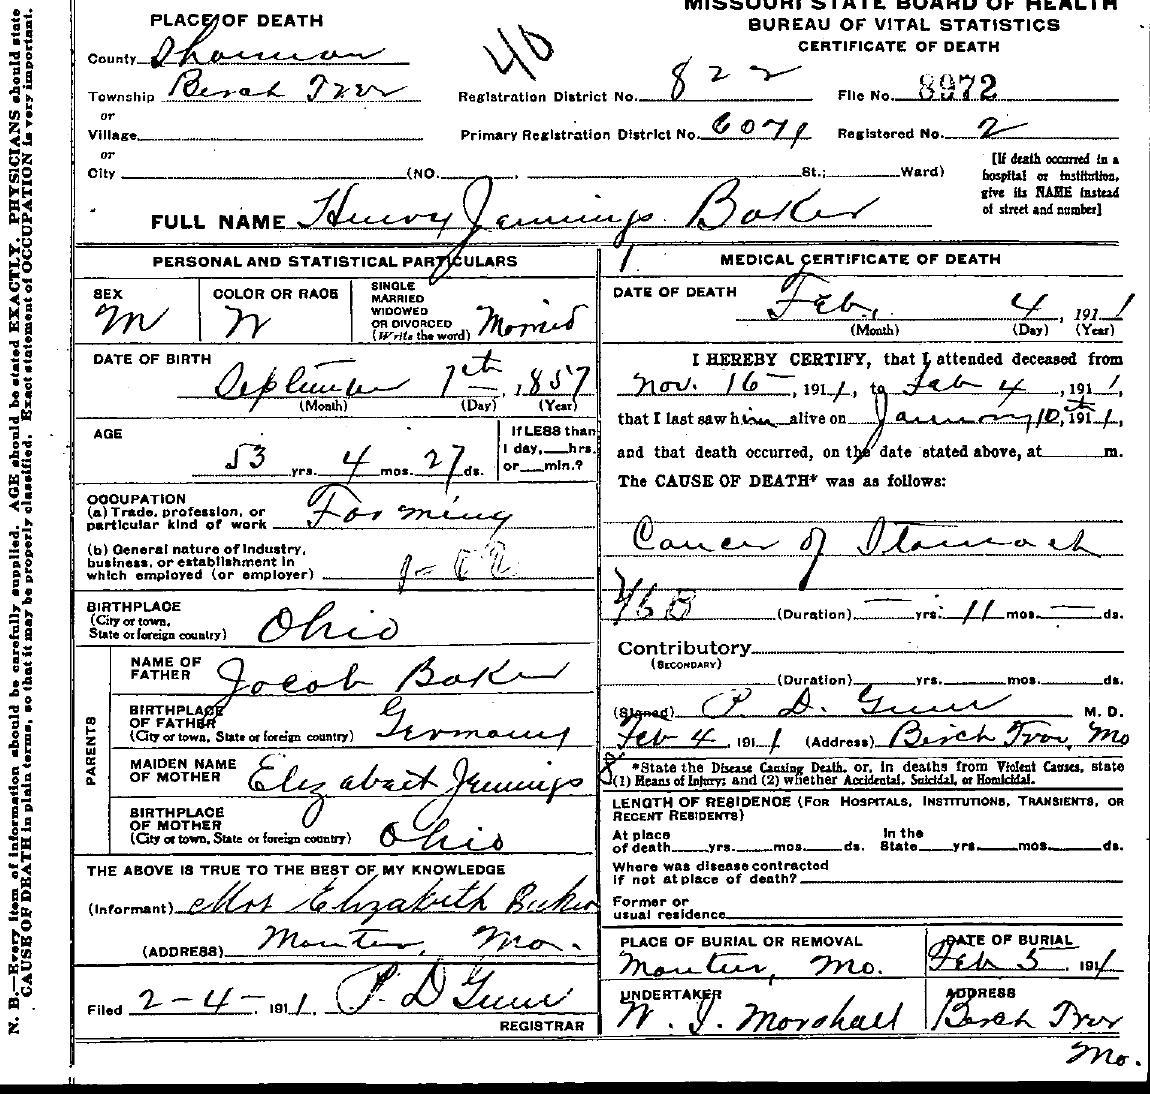 MISSOURI STATE BOARD OF HEALTH
BUREAU OF VITAL STATISTICS
CERTIFICATE OF DEATH
PLACE OF DEATH
County Shannon
Township Birch Tree
or
Village
or
City (NO. , St.; Ward)
40
Registration District No. 822 File No. 8972
Primary Registration District No. 6079 Registered No. 2
[If death occurred in a
hospital or institution,
give its NAME instead
of street and number]
FULL NAME Henry Jennings Baker
PERSONAL AND STATISTICAL PARTICULARS
SEX
M
COLOR OR RACE
W
SINGLE
MARRIED
WIDOWED
OR DIVORCED
(Write the word) Married
DATE OF BIRTH
September 7th, 1857
(Month) (Day) (Year)
AGE
53 yrs. 4 mos. 27 ds.
If LESS than
1 day, hrs.
or min.?
OCCUPATION
(a) Trade, profession, or
particular kind of work Farming
(b) General nature of Industry,
business, or establishment in
which employed (or employer)
BIRTHPLACE
(City or town,
State or foreign country) Ohio
PARENTS
NAME OF
FATHER Jacob Baker
BIRTHPLACE
OF FATHER
(City or town, State or foreign country) Germany
MAIDEN NAME
OF MOTHER Elizabaet Jennings
BIRTHPLACE
OF MOTHER
(City or town, State or foreign country) Ohio
THE ABOVE IS TRUE TO THE BEST OF MY KNOWLEDGE
(Informant) Mrs Elizabeth Baker
(ADDRESS) Montier, Mo.
Filed 2-4-, 1911 P. D. Gum
REGISTRAR
MEDICAL CERTIFICATE OF DEATH
DATE OF DEATH
Feb, 4, 1911
(Month) (Day) (Year)
I HEREBY CERTIFY, that I attended deceased from
Nov. 16, 1911, to Feb 4, 1911,
that I last saw him alive on January 10th, 1911,
and that death occurred, on the date stated above, at m.
The CAUSE OF DEATH* was as follows:
Cancer of Stomach
46B
(Duration) yrs. 11 mos. ds.
Contributory
(SECONDARY)
(Duration) yrs. mos. ds.
(Signed) P. D. Gum M. D.
Feb 4 1911 (Address) Birch Tree, Mo
*State the Disease Causing Death, or, in deaths from Violent Causes, state
(1) Means of Injury; and (2) whether Accidental, Suicidal, or Homicidal.
LENGTH OF RESIDENCE (FOR HOSPITALS, INSTITUTIONS, TRANSIENTS, OR
RECENT RESIDENTS)
At place
of death yrs. mos. ds.
In the
State yrs. mos. ds.
Where was disease contracted
if not at place of death?
Former or
usual residence
PLACE OF BURIAL OR REMOVAL
Montier, Mo.
DATE OF BURIAL
Feb 5, 1911
UNDERTAKER
W. J. Marshall
ADDRESS
Birch Tree
Mo.
N. B.—Every item of information should be carefully supplied. AGE should be stated EXACTLY. PHYSICIANS should state
CAUSE OF DEATH in plain terms, so that it may be properly classified. Exact statement of OCCUPATION is very important.